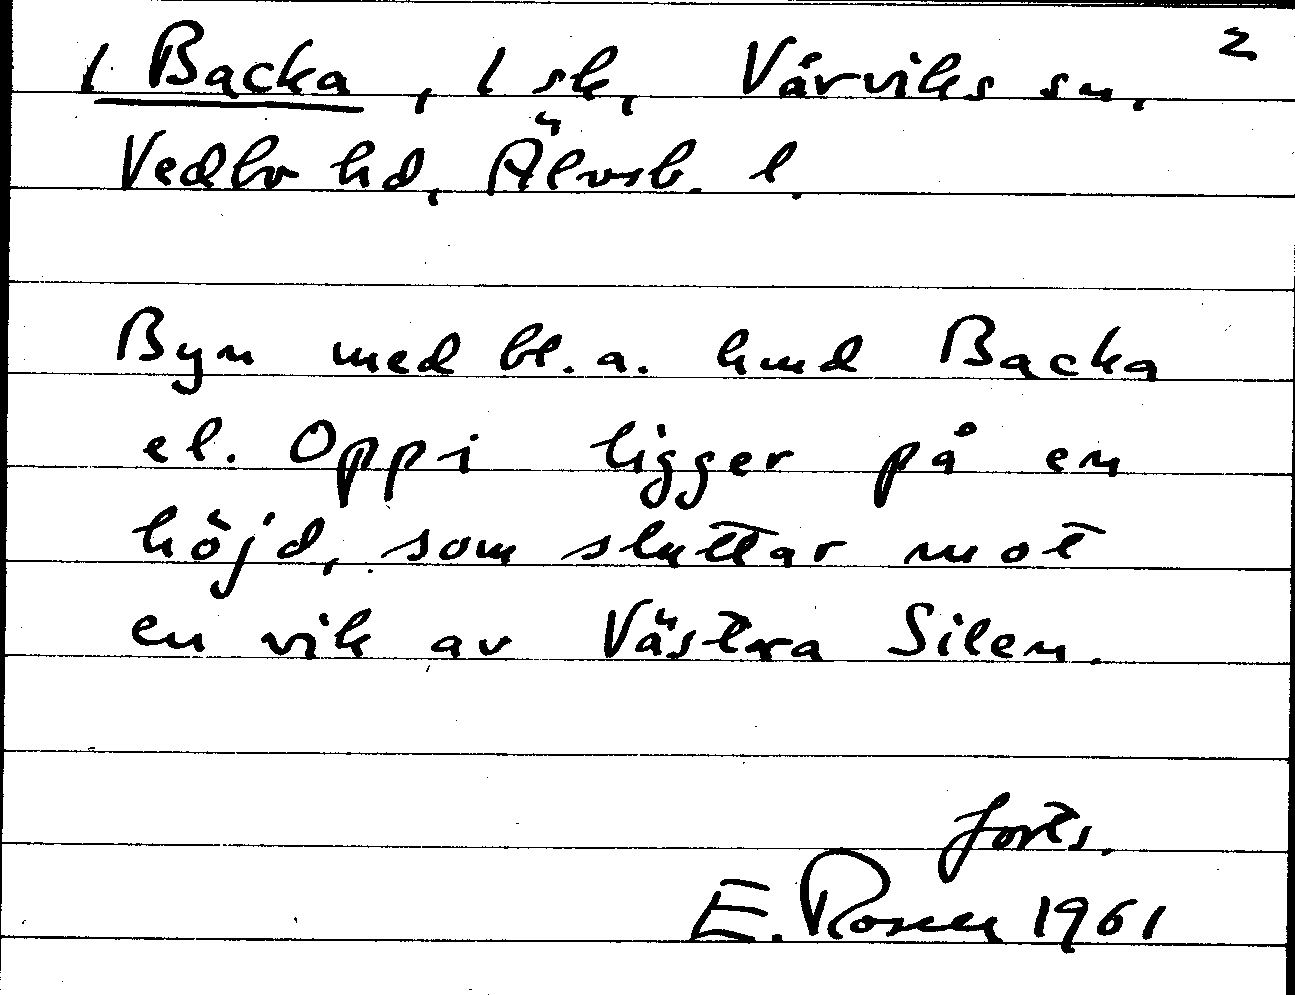 2
1 Backa, 1 sk, Vårviks sn,
Vedbo hd, Älvsb. l.
Byn med bl.a. hmd Backa
el. Oppi ligger på en
höjd, som sluttar mot
en vik av Västra Silen.
forts.
E. Rosen 1961